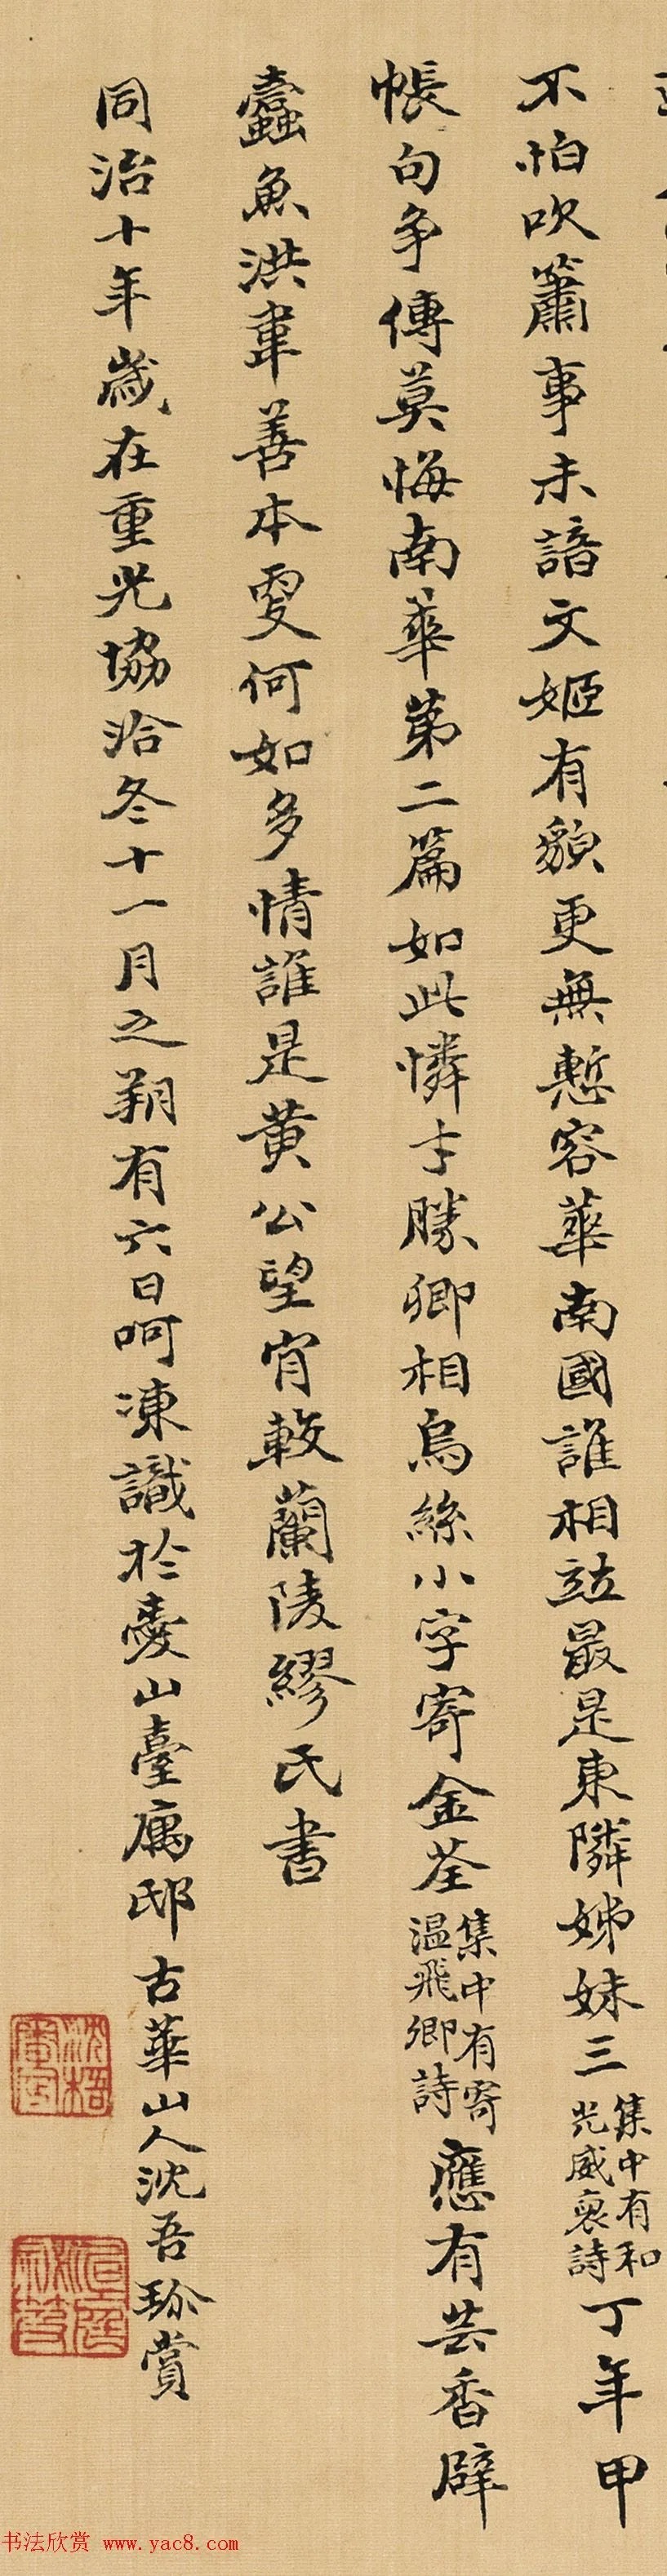 不怕吹簫事未諳文姬有貌更無慙容華南國誰相並最是東隣姊妹三集中有和光威裒詩丁年甲
帳句爭傳莫悔南華第二篇如此憐才勝卿相烏絲小字寄金荃集中有寄溫飛卿詩應有芸香辟
蠹魚洪韋善本更何如多情誰是黃公望肯較蘭陵繆氏書
同治十年歲在重光協洽冬十一月之朔有六日呵凍識於山臺寓邸古華山人沈吾珎賞
沈梧
书法欣赏 www.yac8.com